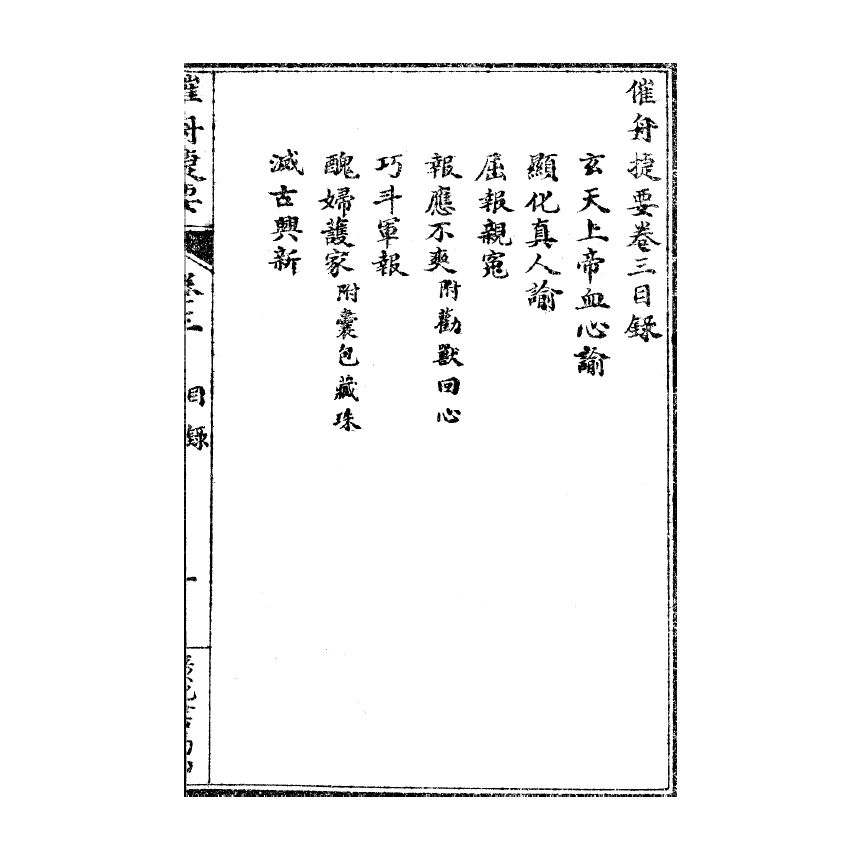 催舟捷要卷三目錄
玄天上帝血心諭
顯化真人諭
屈報親冤
報應不爽附勸獸回心
巧斗軍報
醜婦護家附囊包藏珠
滅古興新
催舟捷要 卷三 目錄 一